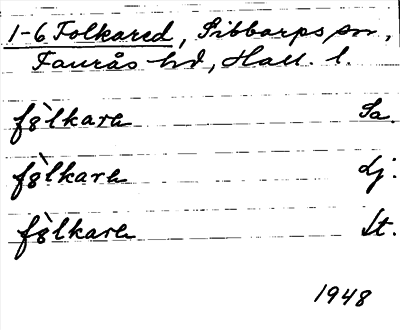 1-6 Folkared, Sibbarps sn,
Faurås hd, Hall. l.
fo̞̍lkarɐ Sa.
fo̞̍lkarɐ Lj.
fo̞̍lkarɐ St.
1948